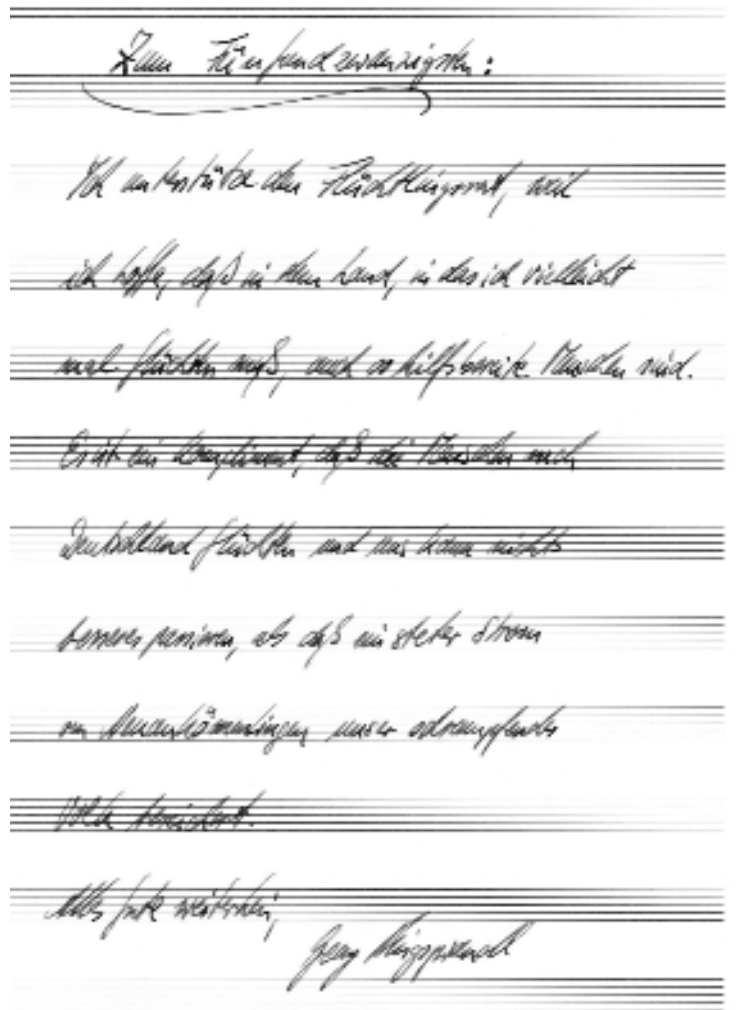 Zum Fünfundzwanzigsten:
Ich unterstütze den Flüchtlingsrat, weil
ich hoffe, daß in dem Land, in das ich vielleicht
mal flüchten muß, auch so hilfsbereite Menschen sind.
Es ist ein Kompliment, daß die Menschen nach
Deutschland flüchten und uns kann nichts
besseres passieren, als daß ein steter Strom
von Neuankömmlingen unser
Volk bereichert.
Alles Gute weiterhin,
Georg